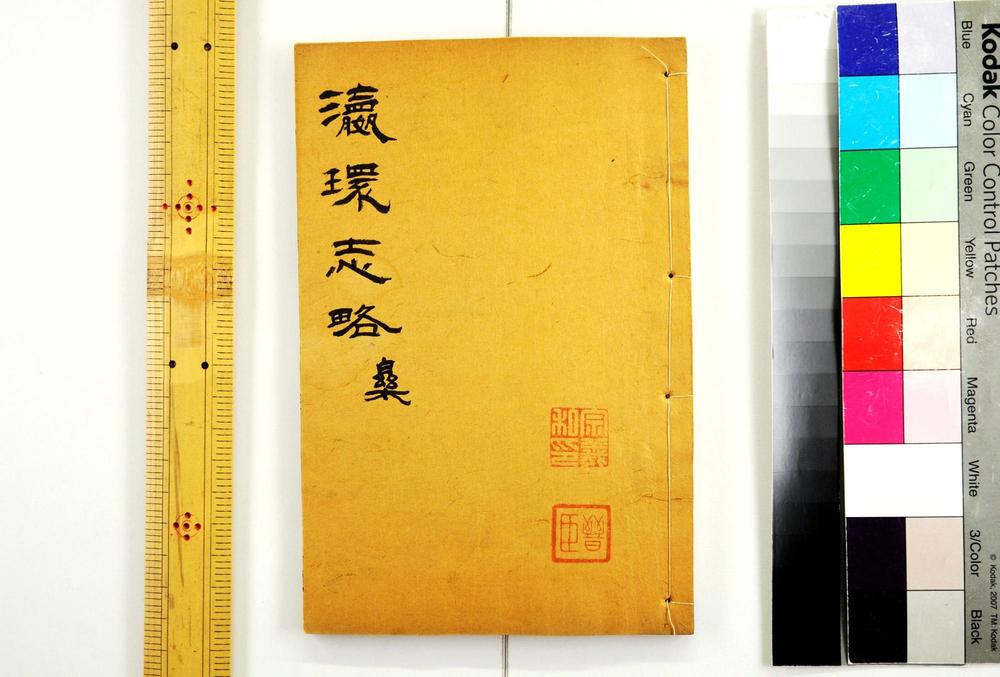 瀛環志略
樂
晉臣
Kodak Color Control Patches
Blue
Cyan
Green
Yellow
Red
Magenta
White
3/Color
Black
© Kodak, 2007 TM: Kodak